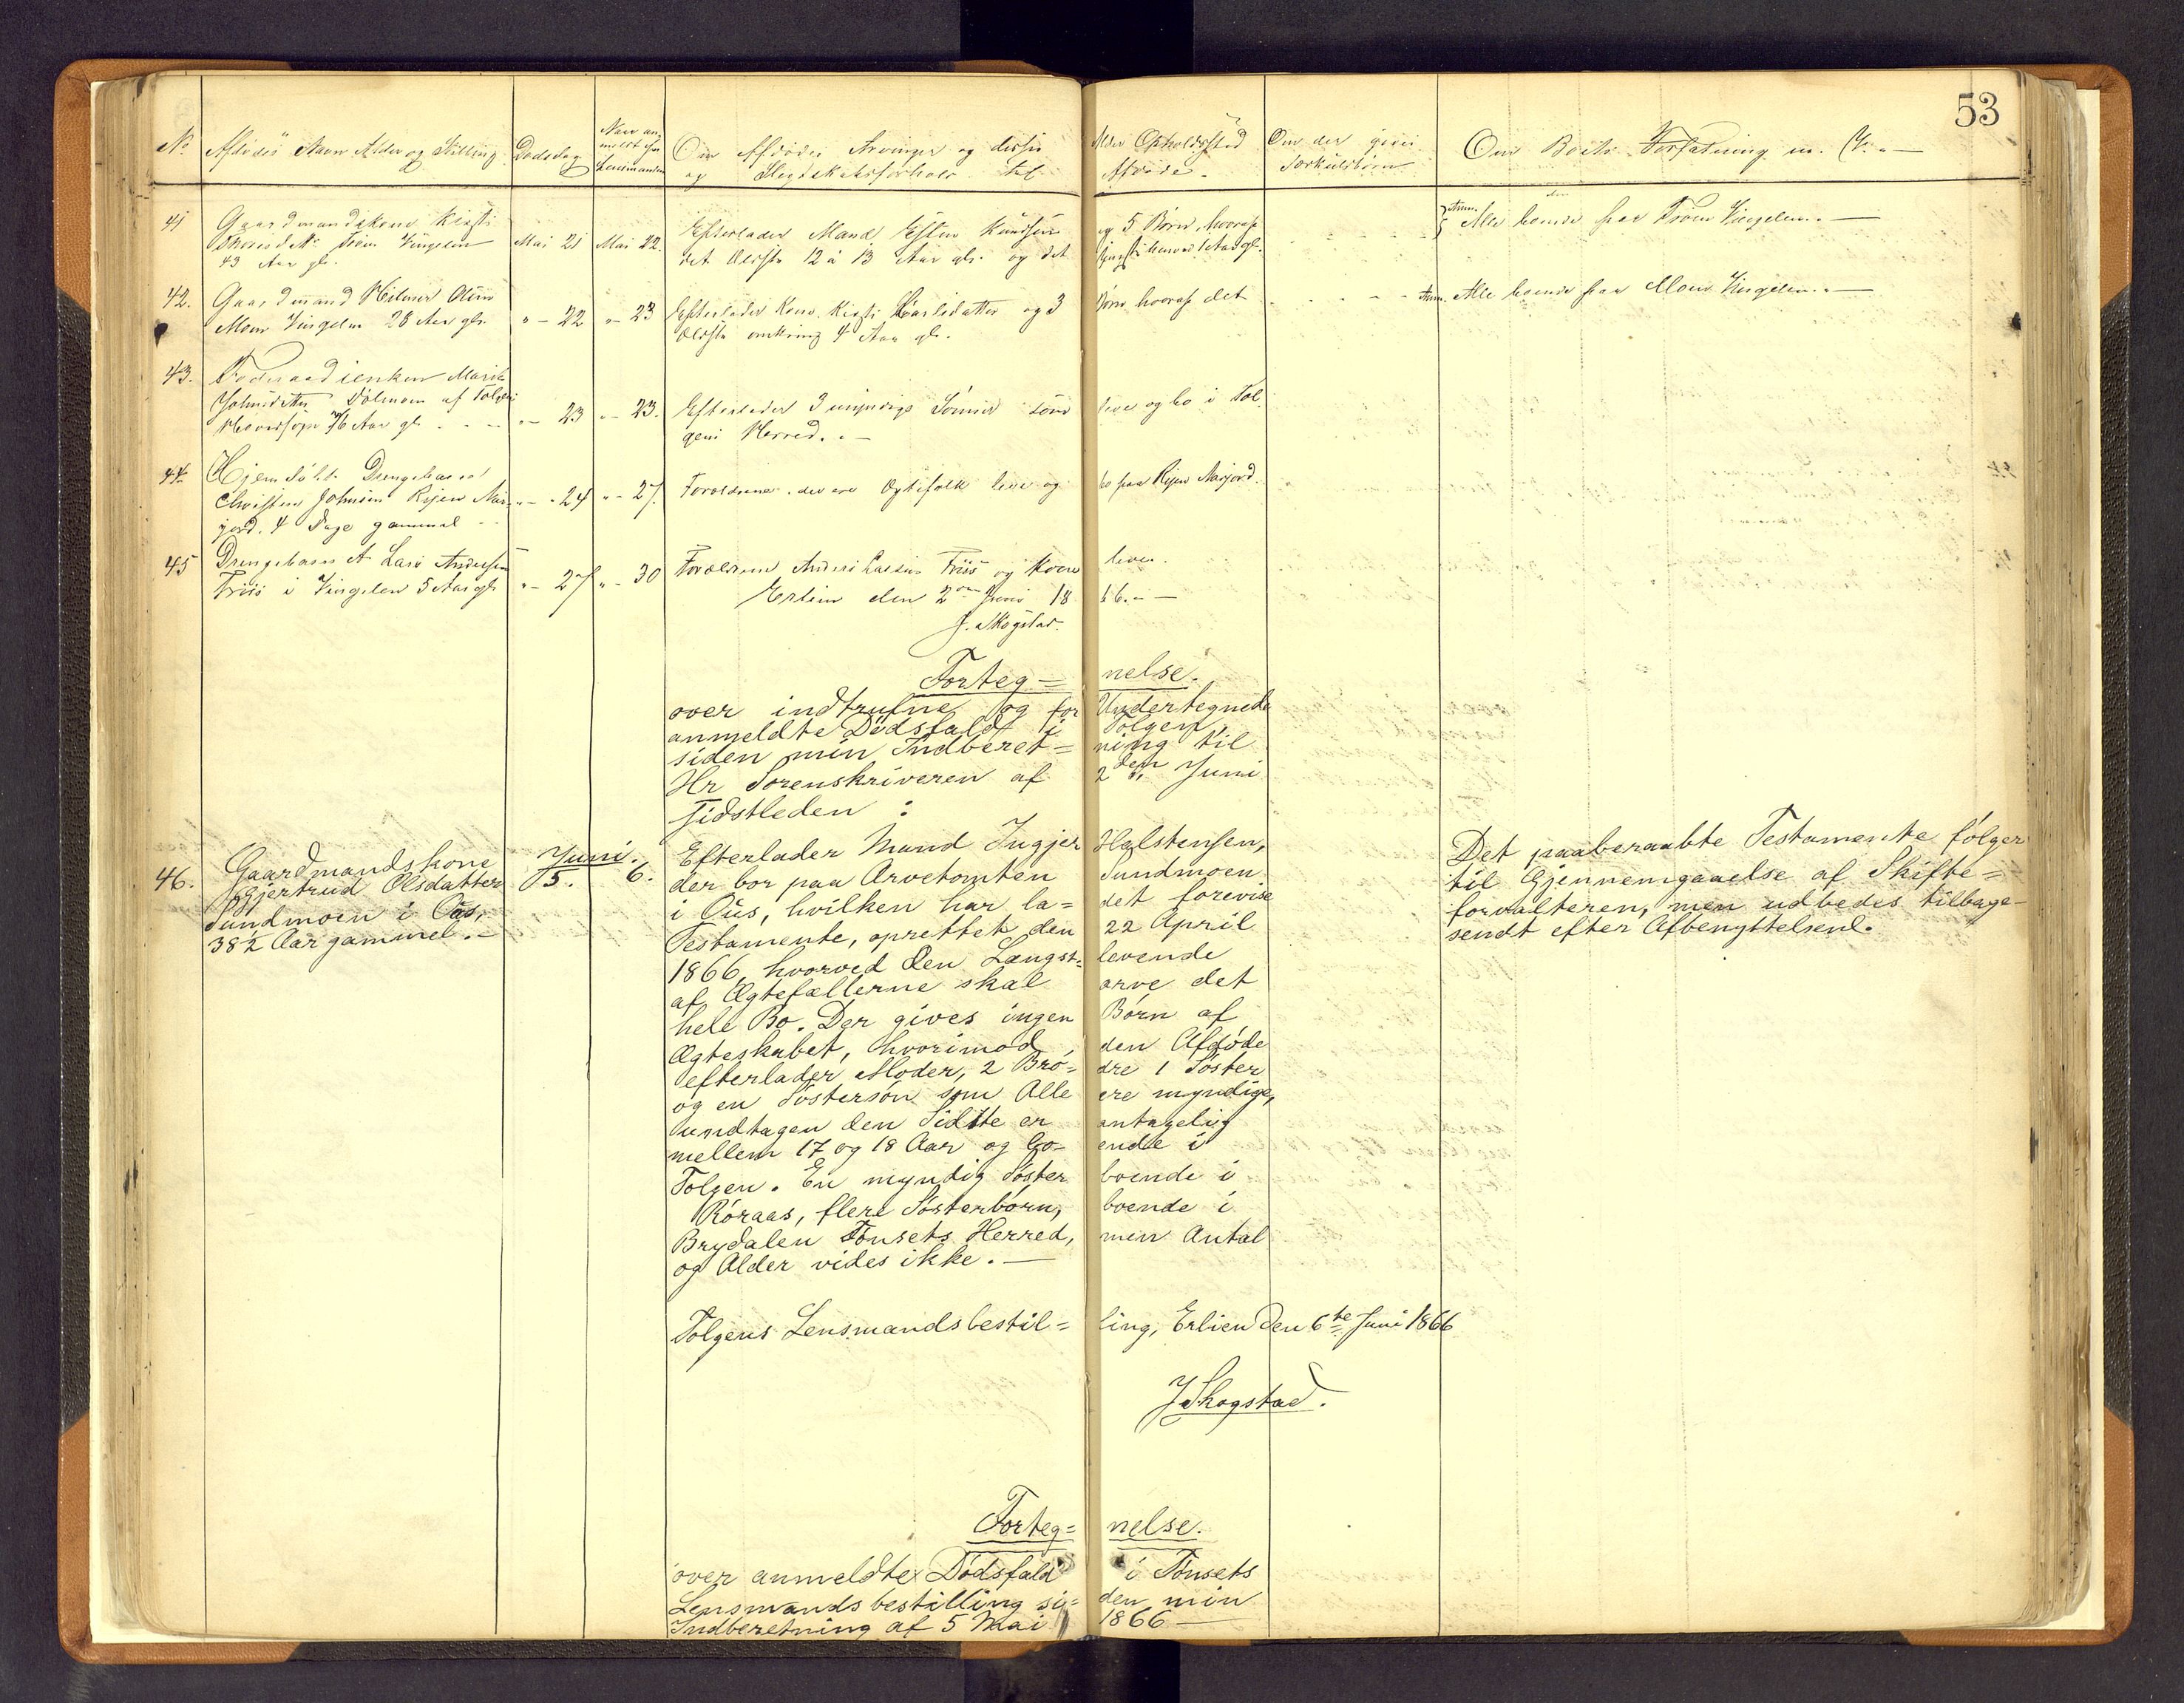 53
No Afdødes Navn Alder og Stilling Dødsdag Naar anmeldt for Lensmanden Om Afdødes Arvinger og disses Alder Opholdssted Om der gives Særkuldbørn Om Boets Forfatning m. V. —
og Slegtskabsforhold til Afdøde.
41 Gaardmandskone Kirsti
Trøen Vingelen Mai 21 Mai 22. Efterlader Mand Esten Knudsen og 5 Børn, hvoraf Anm. Alle boende paa Trøen Vingelen. —
43 Aar gl. det Ældste 12 à 13 Aar gl. og det 1 Aar gl.
42. Gaardmand Olsen
Moen Vingelen 28 Aar gl. " - 22 " - 23 Efterlader Kone Kirsti Larsdatter og 3 Børn hvoraf det Anm. Alle boende paa Moen Vingelen. —
Ældste omkring 4 Aar gl.
43. Føderaadsenken Marit
Johnsdatter af Tolgen
76 Aar gl. " - 23 " - 23. Efterlader 3 myndige Sønner som leve og bo i Tol-
gens Herred. —
44. Hjemdøbt Drengebarn
Christen Johnsen " - 24 " - 27. Forældrene der ere Ægtefolk leve og bo paa
4 Dage gammel
45 Drengebarn Lars Andersen
Friis i Vingelen 5 Aar gl. " - 27 " - 30 Forældrene Anders Larsen Friis og Kone lever.
Erlien den 2den Juni 1866. —
J. Skogstad.
Forteg= nelse.
over indtrufne og for Undertegnede
anmeldte Dødsfald i Tolgen,
siden min Indberet= ning til
Hr Sorenskriveren af 2den Juni
sidstleden :
46. Gaardmandskone Juni.
Gjertrud Olsdatter 5. 6.
Sundmoen i Øūs,
38½ Aar gammel. —
Efterlader Mand Ingjer Halstensen,
der bor paa Arvetomten Sundmoen
i Øūs, hvilken har la= det forevise
Testamente, oprettet den 22 April
1866, hvorved den Længst= levende
af Ægtefællerne skal arve det
hele Bo. Der gives ingen Børn af
Ægteskabet, hvorimod den Afdøde
efterlader Moder, 2 Brø= dre 1 Søster
og en Søstersøn som Alle ere myndige,
undtagen den Sidste er antagelig
mellem 17 og 18 Aar og bo- ende i
Tolgen. En myndig Søster boende i
Røraas, flere Søsterbørn, boende i
Brydalen Tønsets Herred, men Antal
og Alder vides ikke. —
Det paaberaabte Testamente følger
til Gjennemgaaelse af Skifte=
forvalteren, men udbedes tilbage-
sendt efter Afbenyttelsen.
Tolgens Lensmandsbestil= ling, Erlien den 6te Juni 1866
J Skogstad.
Forteg= nelse.
over anmeldte Dødsfald i Tønsets
Lensmandsbestilling si= den min
Indberetning af 5 Mai 1866 —